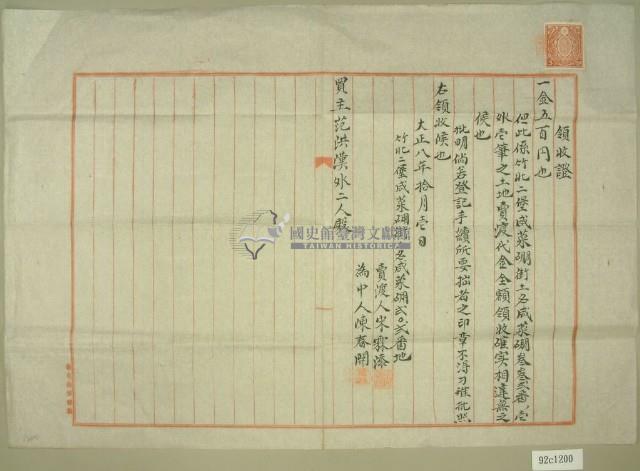 領收證
一金五百円也
但此係竹北二堡咸菜硼街土名咸菜硼叁叁弍番ノ壱
外壱筆之土地賣渡代金全額領收確实相違無之
候也
批明倘若登記手續所要拙者之印章不得刁推批照
右領收候也
大正八年拾月壱日
竹北二堡咸菜硼街土名咸菜硼弍〇弍番地
賣渡人
為中人陳春開
買主范洪漢外二人殿
國史館臺灣文獻館
TAIWAN HISTORICA
92c1200